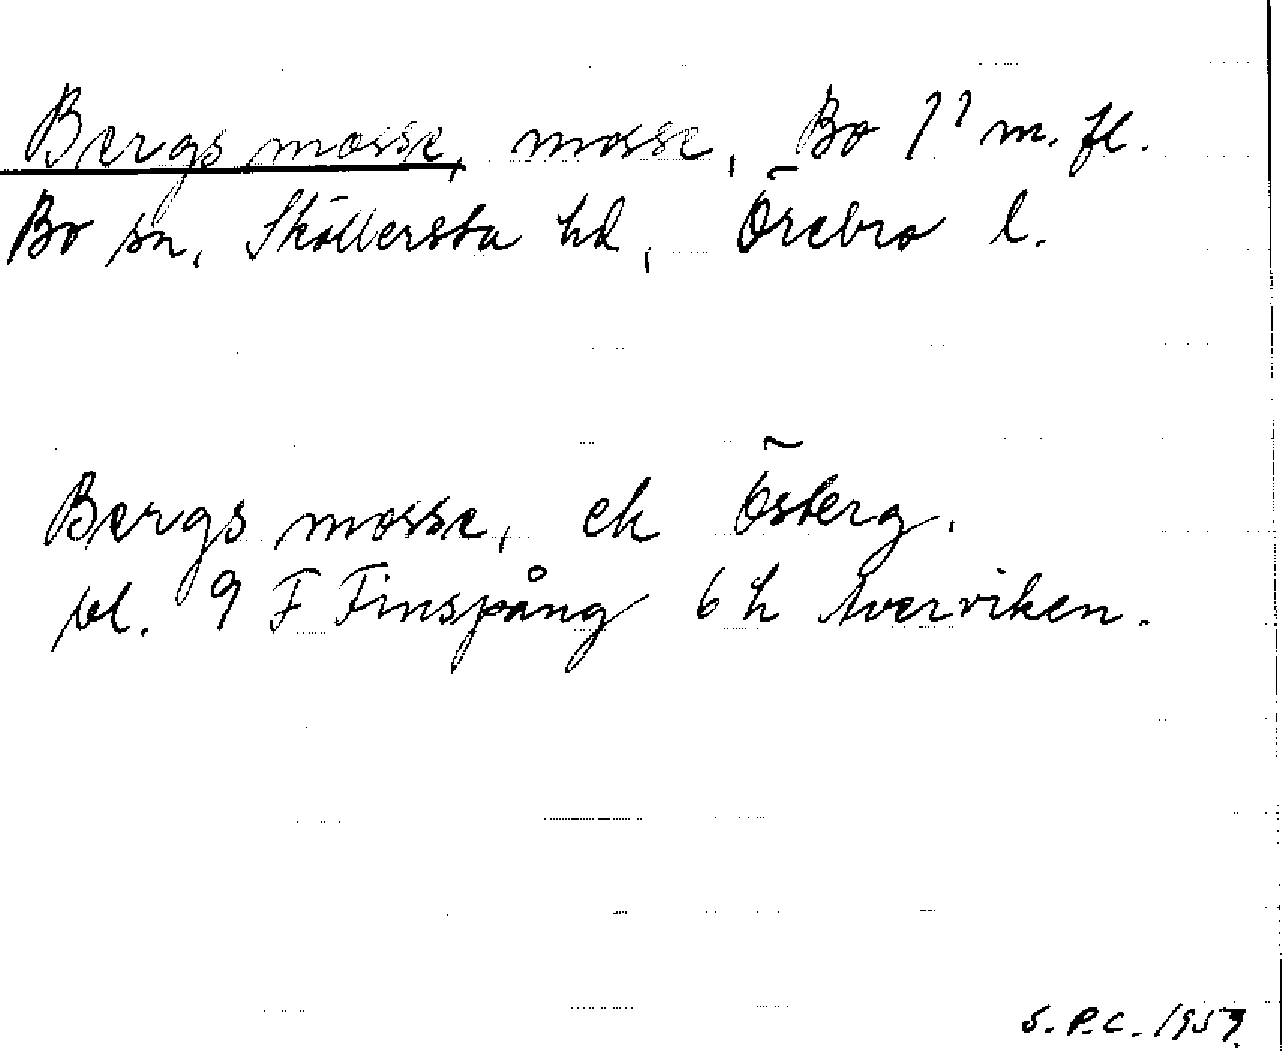 Bergs mosse, mosse, Bo 1¹ m. fl.
Bo sn, Sköllersta hd, Örebro l.
Bergs mosse, ek Österg.
bl. 9 F Finspång 6 h Averviken.
S.P.C. 1959.